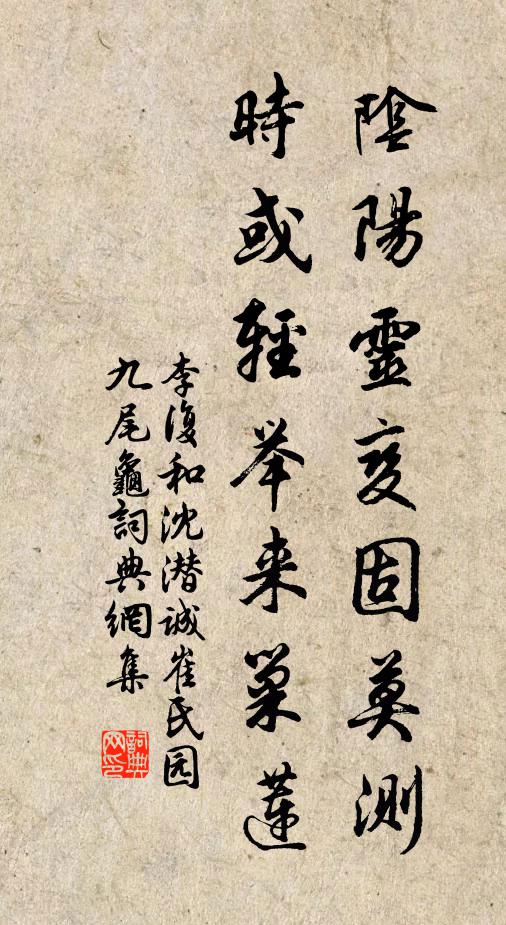 陰陽靈变固莫测
時或輕举来巢蓮
李復和沈潜诚崔氏园
九尾龜詞典網集
詞典网印